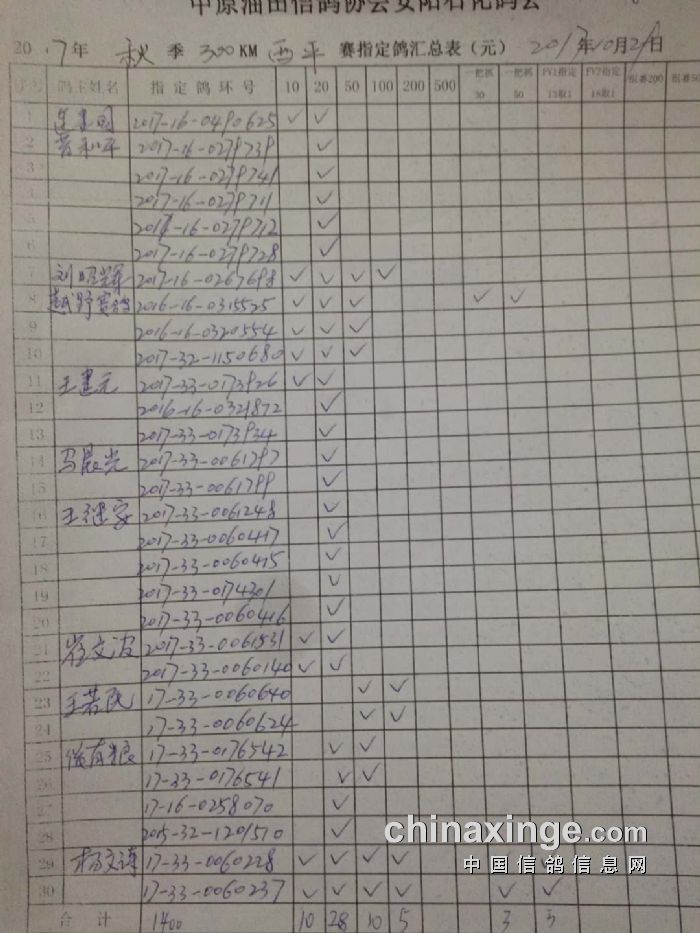 中原油田信鸽协会安阳石化鸽会
2017年 秋 季 300KM 西平 赛指定鸽汇总表(元) 2017年10月29日
序号 鸽主姓名 指定鸽环号 10 20 50 100 200 500 一把抓30 一把抓50 FY1指定13取1 FY2指定18取1 组赛200 组赛50
1 2017-16-0490625 ✓ ✓
2 黄和平 2017-16-0279739 ✓
3 2017-16-0279741 ✓
4 2017-16-0279711 ✓
5 2017-16-0279712 ✓
6 2017-16-0279728 ✓
7 刘昭辉 2017-16-0267698 ✓ ✓ ✓ ✓
8 越野赛鸽 2016-16-0315525 ✓ ✓ ✓ ✓ ✓
9 2016-16-0320554 ✓ ✓ ✓
10 2017-32-1150680 ✓ ✓ ✓
11 王建元 2017-33-0173926 ✓ ✓
12 2016-16-0321872 ✓
13 2017-33-0173934 ✓
14 马晨光 2017-33-0061797 ✓
15 2017-33-0061799 ✓
16 王继家 2017-33-0061248 ✓
17 2017-33-0060417 ✓
18 2017-33-0060415 ✓
19 2017-33-0174301 ✓
20 2017-33-0060416 ✓
21 崔文波 2017-33-0061531 ✓ ✓
22 2017-33-0060140 ✓ ✓
23 王若民 17-33-0060640 ✓ ✓
24 17-33-0060624 ✓ ✓
25 17-33-0176542 ✓ ✓
26 17-33-0176541 ✓ ✓
27 17-16-0258070 ✓
28 2015-32-1201570 ✓
29 杨文涛 17-33-0060228 ✓ ✓ ✓ ✓ ✓ ✓
30 17-33-0060237 ✓ ✓ ✓ ✓ ✓ ✓
合计 1400 10 28 10 5 3 3
chinaxinge.com
中国信鸽信息网